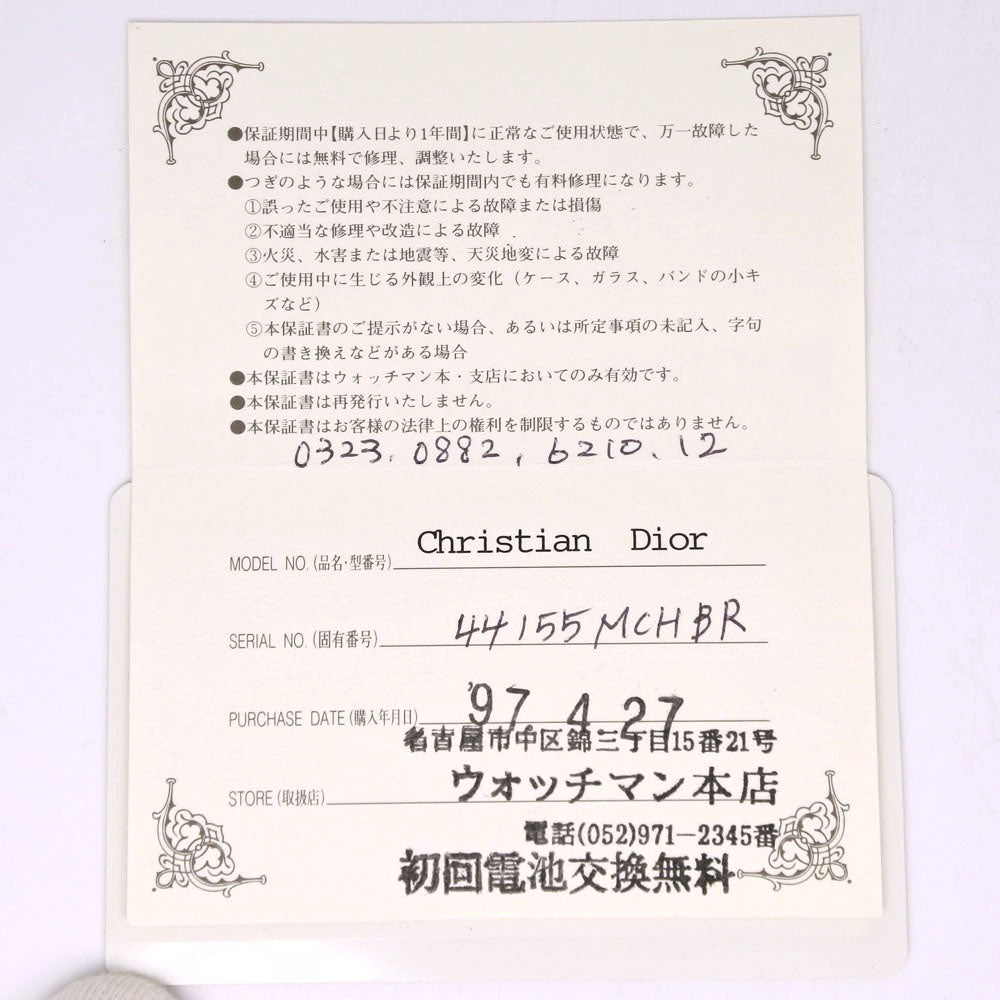 ●保証期間中【購入日より1年間】に正常なご使用状態で、万一故障した
場合には無料で修理、調整いたします。
●つぎのような場合には保証期間内でも有料修理になります。
①誤ったご使用や不注意による故障または損傷
②不適当な修理や改造による故障
③火災、水害または地震等、天災地変による故障
④ご使用中に生じる外観上の変化（ケース、ガラス、バンドの小キ
ズなど）
⑤本保証書のご提示がない場合、あるいは所定事項の未記入、字句
の書き換えなどがある場合
●本保証書はウォッチマン本・支店においてのみ有効です。
●本保証書は再発行いたしません。
●本保証書はお客様の法律上の権利を制限するものではありません。
0323.0882.6210.12
MODEL NO.(品名・型番号) Christian Dior
SERIAL NO.(固有番号) 44155MCHBR
PURCHASE DATE(購入年月日) '97. 4 27
名古屋市中区錦三丁目15番21号
STORE(取扱店) ウォッチマン本店
電話(052)971-2345番
初回電池交換無料